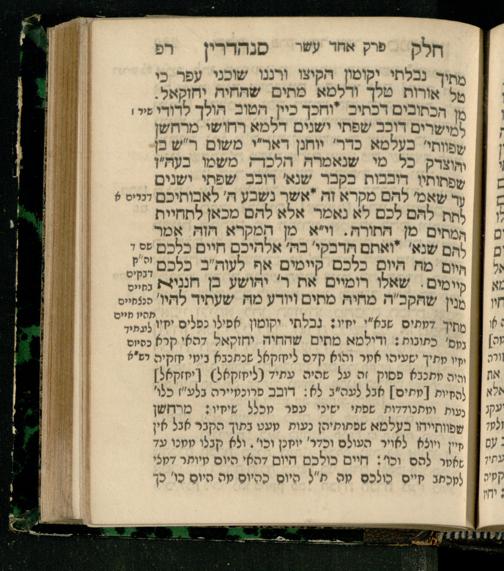 חלק פרק אחד עשר סנהדרין רפ
מתיך נבלתי יקומון הקיצו ורננו שוכני עפר כי
טל אורות טלך ודלמא מתים שהחיה יחזקאל.
מן הכתובים דכתיב *וחכך כיין הטוב הולך לדודי
למישרים דובב שפתי ישנים דלמא רחושי מרחשן
שפוותי' בעלמא כדר' יוחנן דאר"י משום ר"ש בן
יהוצדק כל מי שנאמרה הלכה משמו בעה"ז
שפתותיו דובבות בקבר שנא' דובב שפתי ישנים
עד שאמ' להם מקרא זה *אשר נשבע ה' לאבותיכם
לתת להם לכם לא נאמר אלא להם מכאן לתחיית
המתים מן התורה. וי"א מן המקרא הזה אמר
להם שנא' *ואתם הדבקי' בה' אלהיכם חיים כלכם
היום מה היום כלכם קיימים אף לעוה"ב כלכם
קיימים. שאלו רומיים את ר' יהושע בן חנניא
מנין שהקב"ה מחיה מתים ויודע מה שעתיד להיו'
שיר ז
דברים א
שם ד
מתיך דמתים שבא"י יחיו: נבלתי יקומון אפילו נפלים יחיו
כתובות: ודילמא מתים שהחיה יחזקאל דהאי קרא
יחיו מתיך ישעיהו אמר והוא קדם ליחזקאל שנתנבא בימי חזקיה
והיה מתנבא פסוק זה על שהיה עתיד (ליחזקאל) [יחזקאל]
להחיות [מתים] אבל לעה"ב לא: דובב פרונמיירה בלע"ז כלו'
נעות ומתנודדות שפתי ישיני עפר מכלל שיחיו: מרחשן
שפוותייהו בעלמא שפתותיהן נעות מעט בתוך הקבר אבל אין
חיין ויוצא לאויר העולם וכדר' יוחנן וכו'. ולא קבלו ממנו עד
שאמר להם וכו': חיים כולכם היום דהאי היום מיותר דמצי
למכתב חיים כולכם מה ת"ל היום כהיום מה היום כו' כך